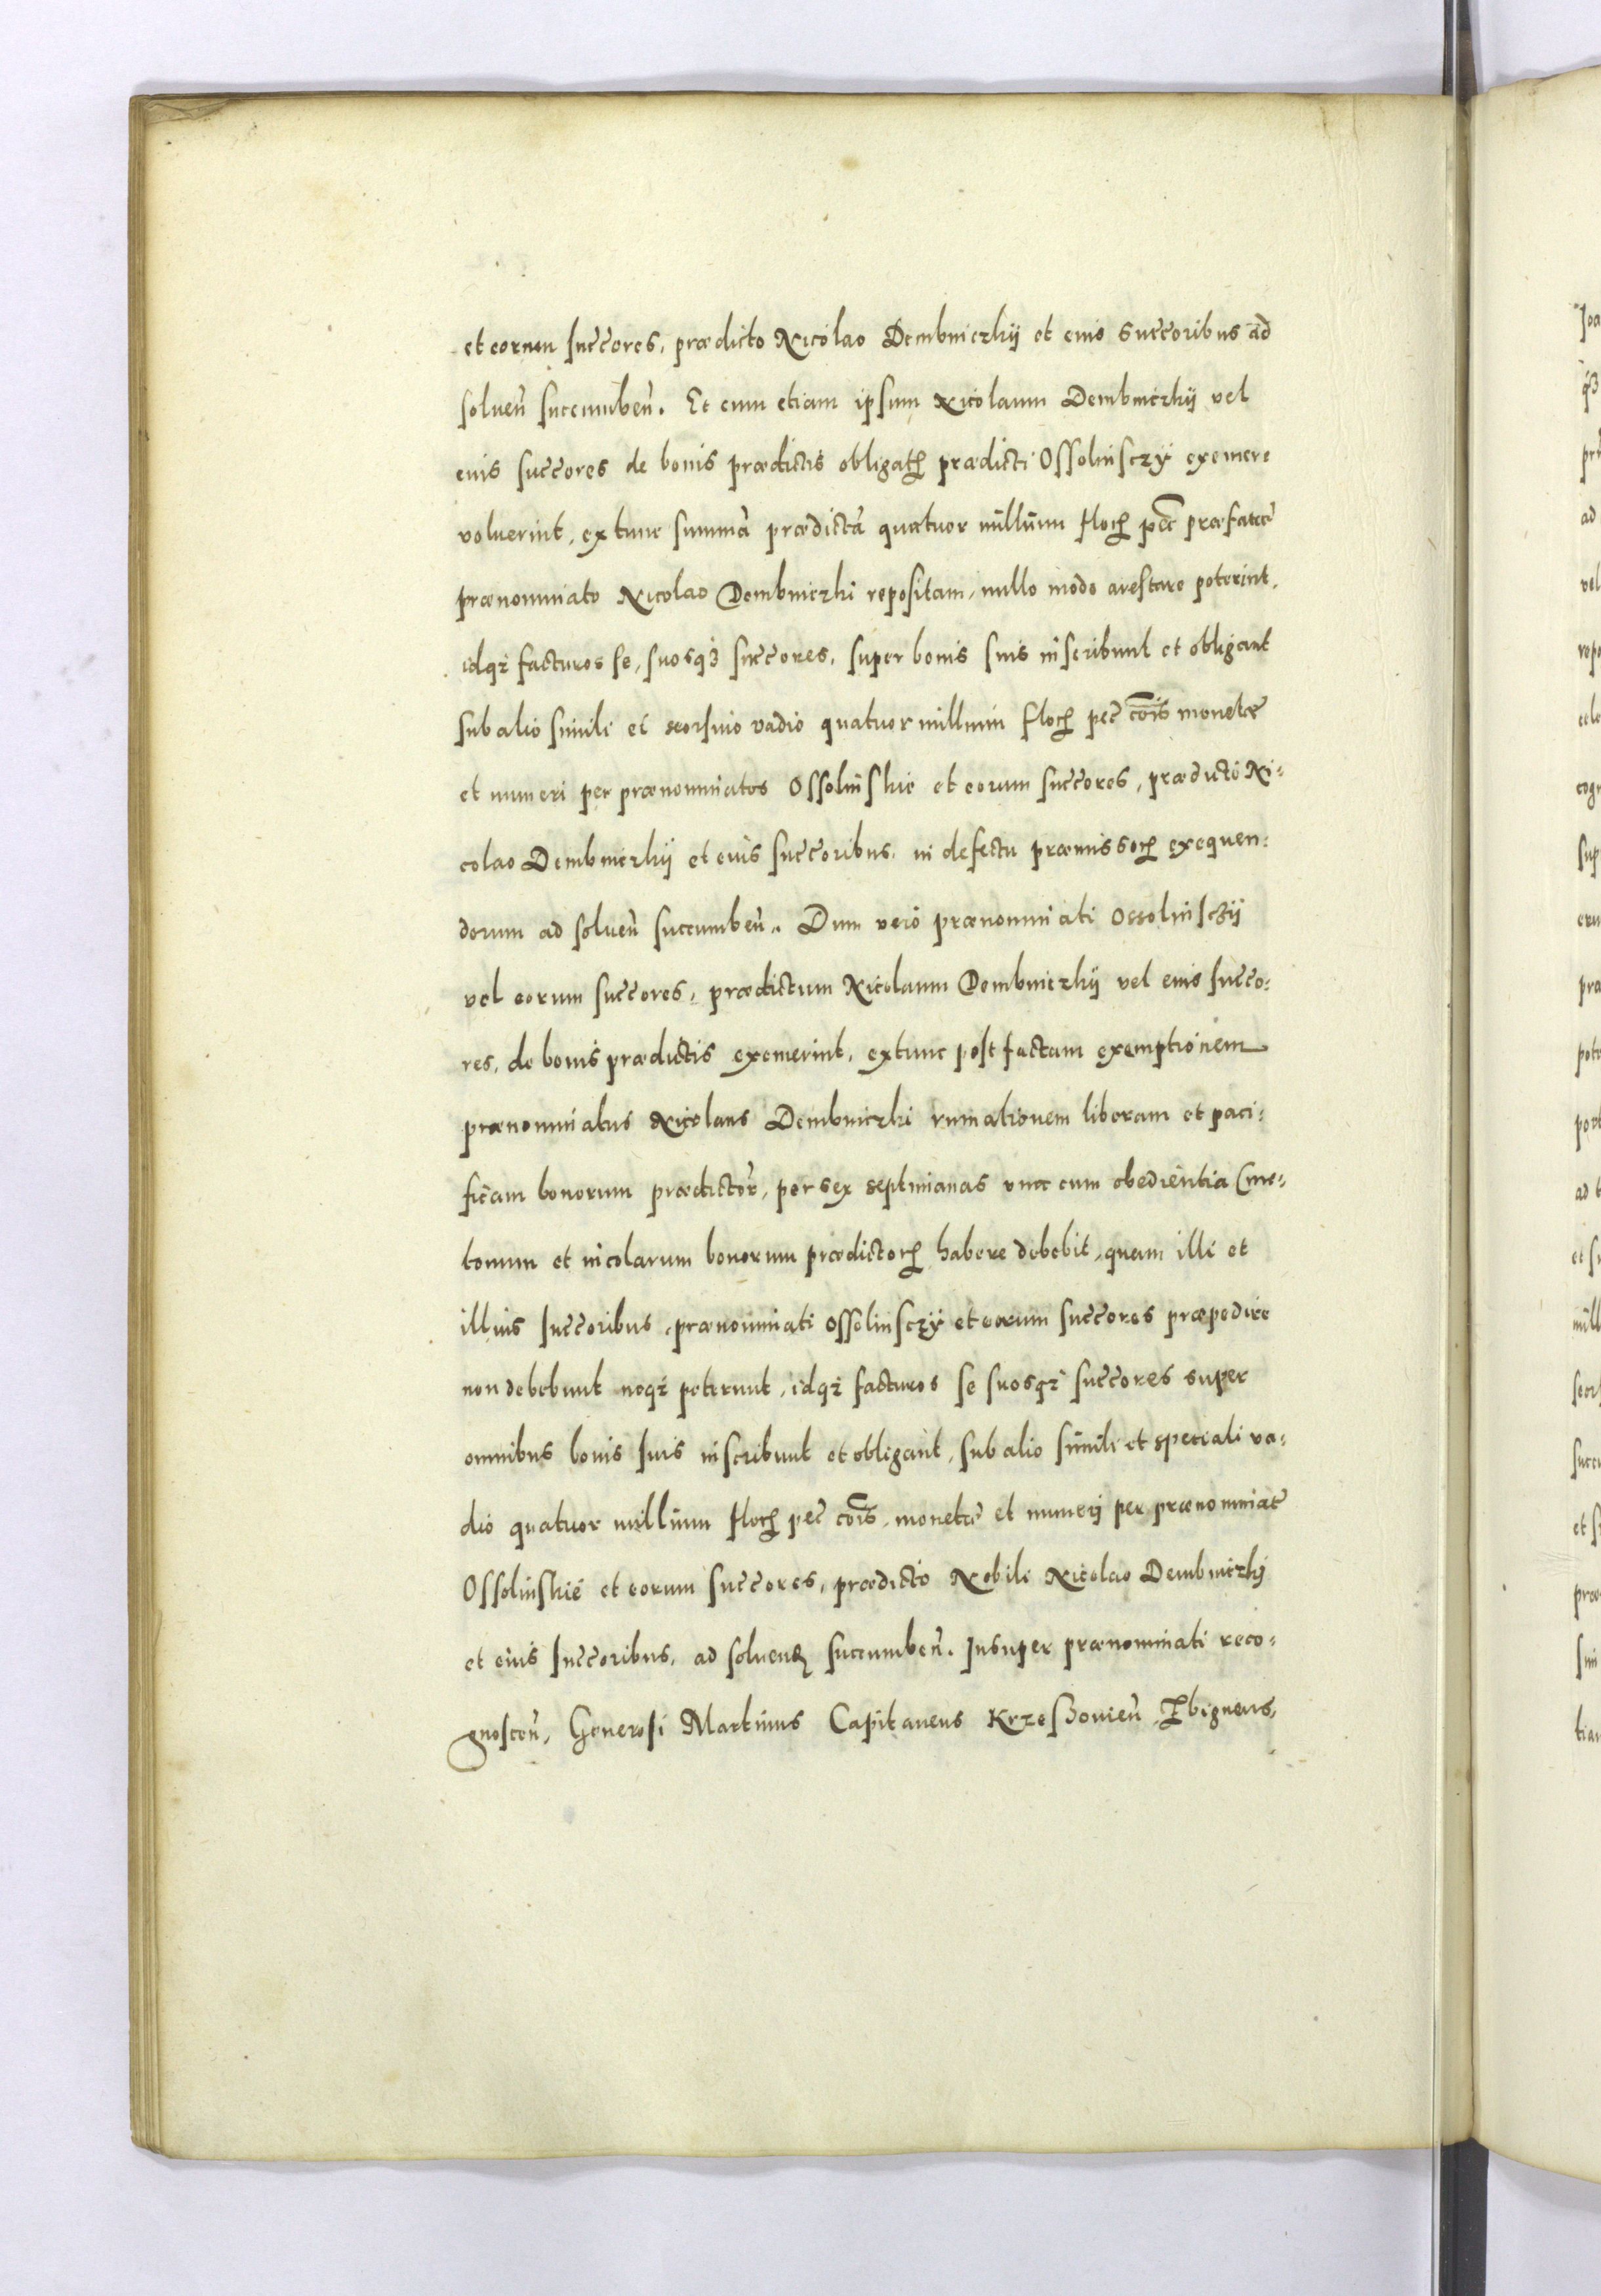 et eorum succores, prædicto Nicolao Dembniczkij et eius succoribus ad
soluen̄ succumben̄. Et cum etiam ipsum Nicolaum Dembniczkij vel
eius succores de bonis prædictis obligatꝝ prædicti Ossolinsczÿ exemere
voluerint, extunc summā prædictā quatuor millium flocꝝ pec̄ præfatæ
prænominato Nicolao Dembniczki repositam, nullo modo arestare poterint,
idqꝫ facturos se, suosqꝫ succores, super bonis suis inscribunt et obligant
sub alio simili et seorsiuo vadio quatuor millium flocꝝ pec̄ cōis monetæ
et numeri per prænominatos Ossolinskie et eorum succores, prædicto Ni-
colao Dembniczkij et eius succoribus, in defectu præmissorꝝ exequen-
dorum ad soluen̄ succumben̄. Dum vero prænominati Ossolinsczij
vel eorum succores, prædictum Nicolaum Dembniczkij vel eius succo-
res, de bonis prædictis exemerint, extunc post factam exemptionem
prænominatus Nicolaus Dembniczki rumationem liberam et paci-
ficam bonorum prædictor̄, per sex septimanas vna cum obedientia Cme-
tonum et incolarum bonorum prædictorꝝ habere debebit, quam illi et
illius succoribus, prænominati Ossolinsczÿ et eorum succores præpedire
non debebunt neqꝫ poterunt, idqꝫ facturos se suosqꝫ succores super
omnibus bonis suis inscribunt et obligant, sub alio simili et speciali va-
dio quatuor millium flocꝝ pec̄ cōis, monetæ et numerj per prænominat̄
Ossolinskie et eorum succores, prædicto Nobili Nicolao Dembniczkj
et eius succoribus, ad soluenꝫ succumben̄. Insuper prænominati reco-
gnoscen̄, Generosi Martinus Capitaneus Krzeszouien̄, Zbigneus,